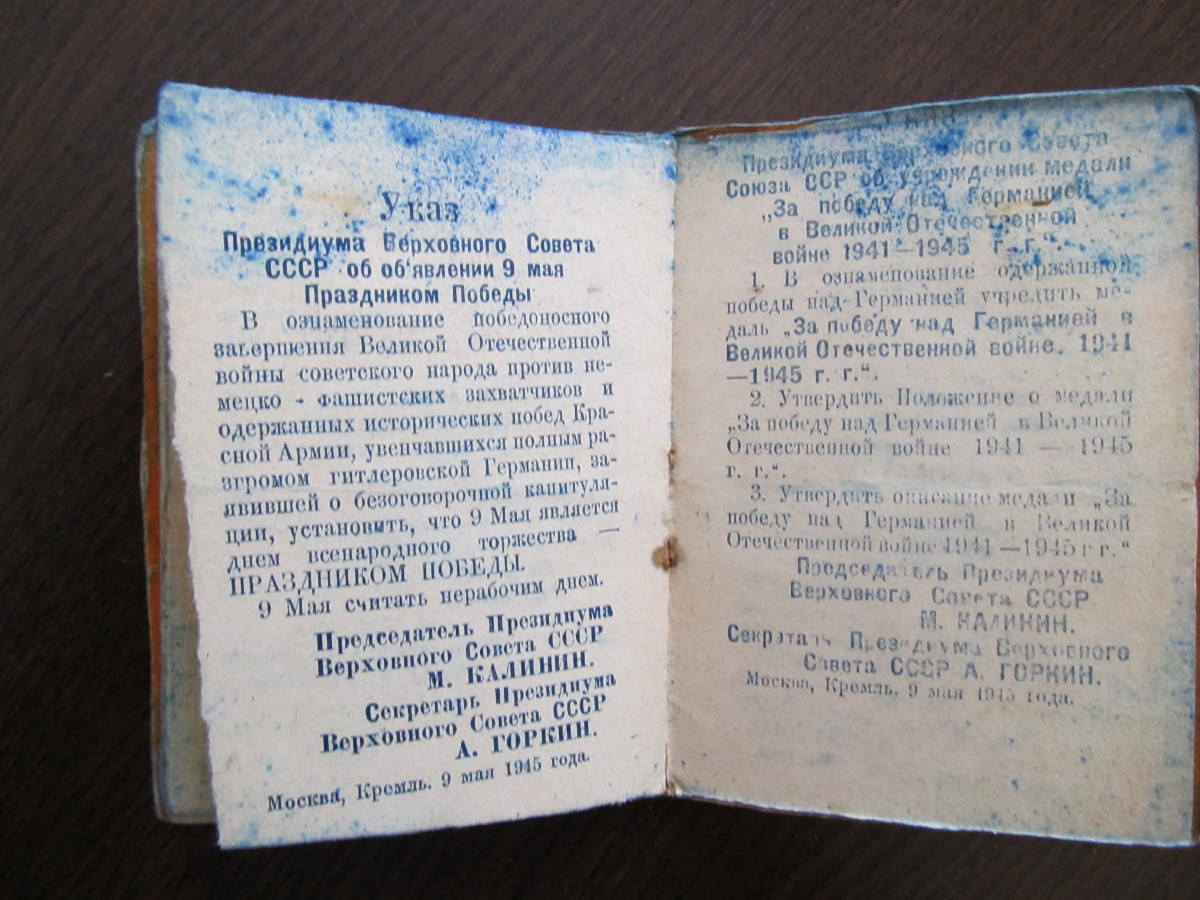 Указ
Президиума Верховного Совета
СССР об об'явлении 9 мая
Праздником Победы
В ознаменование победоносного
завершения Великой Отечественной
войны советского народа против не-
мецко - фашистских захватчиков и
одержанных исторических побед Кра-
сной Армии, увенчавшихся полным ра-
згромом гитлеровской Германии, за-
явившей о безоговорочной капитуля-
ции, установить, что 9 Мая является
днем всенародного торжества —
ПРАЗДНИКОМ ПОБЕДЫ.
9 Мая считать нерабочим днем.
Председатель Президиума
Верховного Совета СССР
М. КАЛИНИН.
Секретарь Президиума
Верховного Совета СССР
А. ГОРКИН.
Москва, Кремль. 9 мая 1945 года.
Президиума Верховного Совета
Союза ССР об учреждении медали
„За победу над Германией
в Великой Отечественной
войне 1941—1945 г. г.“.
1. В ознаменование одержанной
победы над Германией учредить ме-
даль „За победу над Германией в
Великой Отечественной войне. 1941
—1945 г. г.“.
2. Утвердить Положение о медали
„За победу над Германией в Великой
Отечественной войне 1941 — 1945
г. г.“.
3. Утвердить описание медали „За
победу над Германией в Великой
Отечественной войне 1941—1945 г г.“
Председатель Президиума
Верховного Совета СССР
М. КАЛИНИН.
Секретарь Президиума Верховного
Совета СССР А. ГОРКИН.
Москва, Кремль. 9 мая 1945 года.